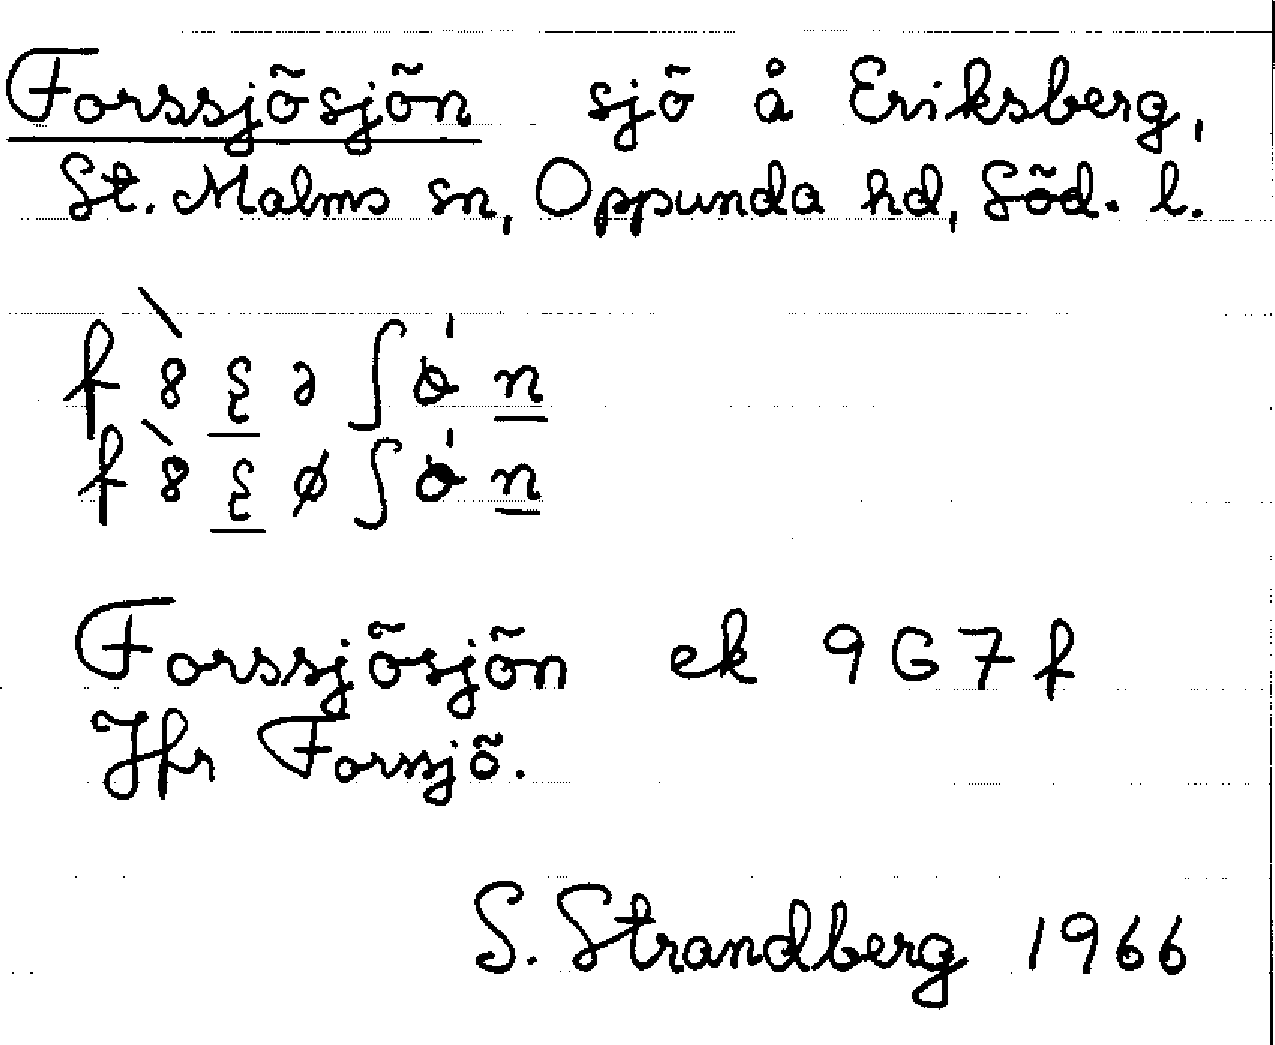 Forssjösjön sjö å Eriksberg,
St. Malms sn, Oppunda hd, Söd. l.
Forssjösjön ek 9G7f
Jfr Forssjö.
S. Strandberg 1966